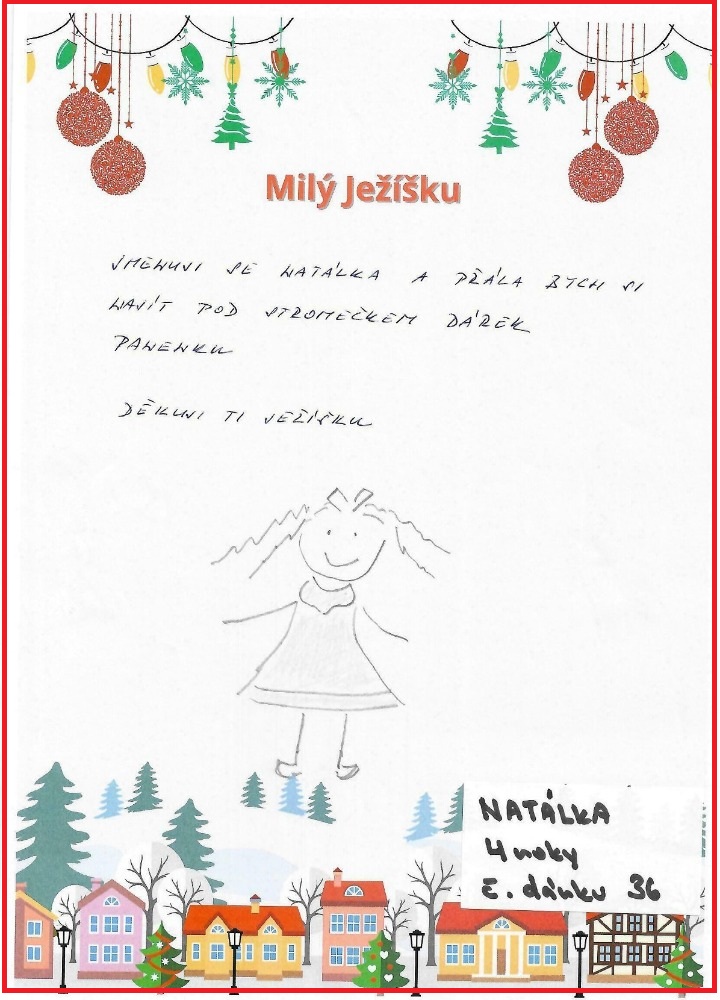 Milý Ježíšku
JMENUJI SE NATÁLKA A PŘÁLA BYCH SI
NAJÍT POD STROMEČKEM DÁREK
PANENKU
DĚKUJI TI JEŽÍŠKU
NATÁLKA
4 roky
č. dárku 36